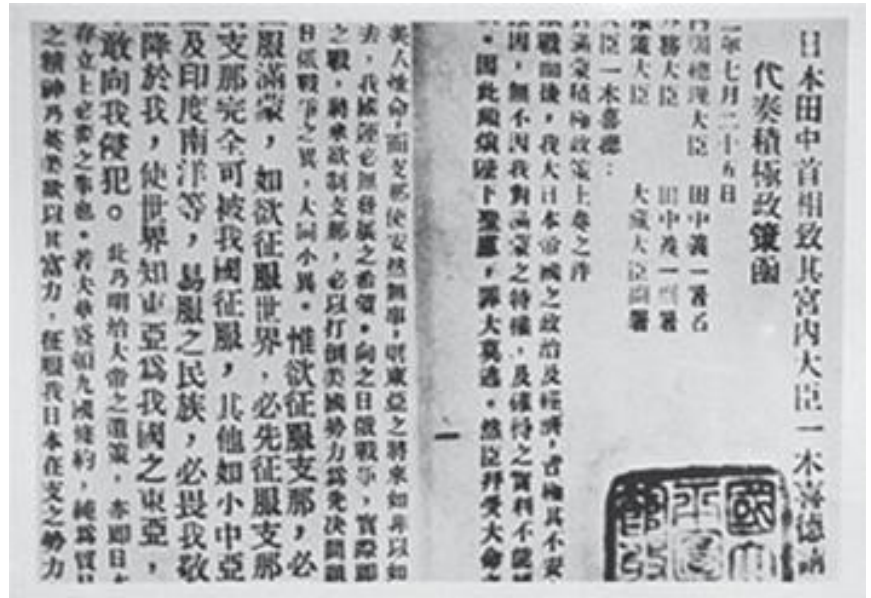 日本田中首相致其宮内大臣一木喜德
代奏積極政策函
二年七月二十五日
内閣總理大臣 田中義一署名
外務大臣 田中義一署
鐵道大臣 大藏大臣副署
大臣一木喜德：
滿蒙積極政策上奏之件
歐戰而後，我大日本帝國之政治及經濟，皆極其不安
原因，無不因我對滿蒙之特權，及確得之實利不能
。因此頗煩陛下聖慮，罪大莫逃。然臣拜受大命之
一
英人 命而支那使安然無事，則東亞之將來如非以如
去，我國運必無發展之希望。向之日俄戰爭，實際即
之戰，將來欲制支那，必以打倒美國勢力爲先決問題
日俄戰爭之異，大同小異。惟欲征服支那，必
服滿蒙，如欲征服世界，必先征服支那
支那完全可被我國征服，其他如小中亞
及印度南洋等，易服之民族，必畏我敬
降於我，使世界知東亞爲我國之東亞，
敢向我侵犯。此乃明治大帝之遺策，亦即日本
存立上必要之事也。若夫華盛頓九國條約，純爲貿
之精神乃英美欲以其富力，征服我日本在支之勢力